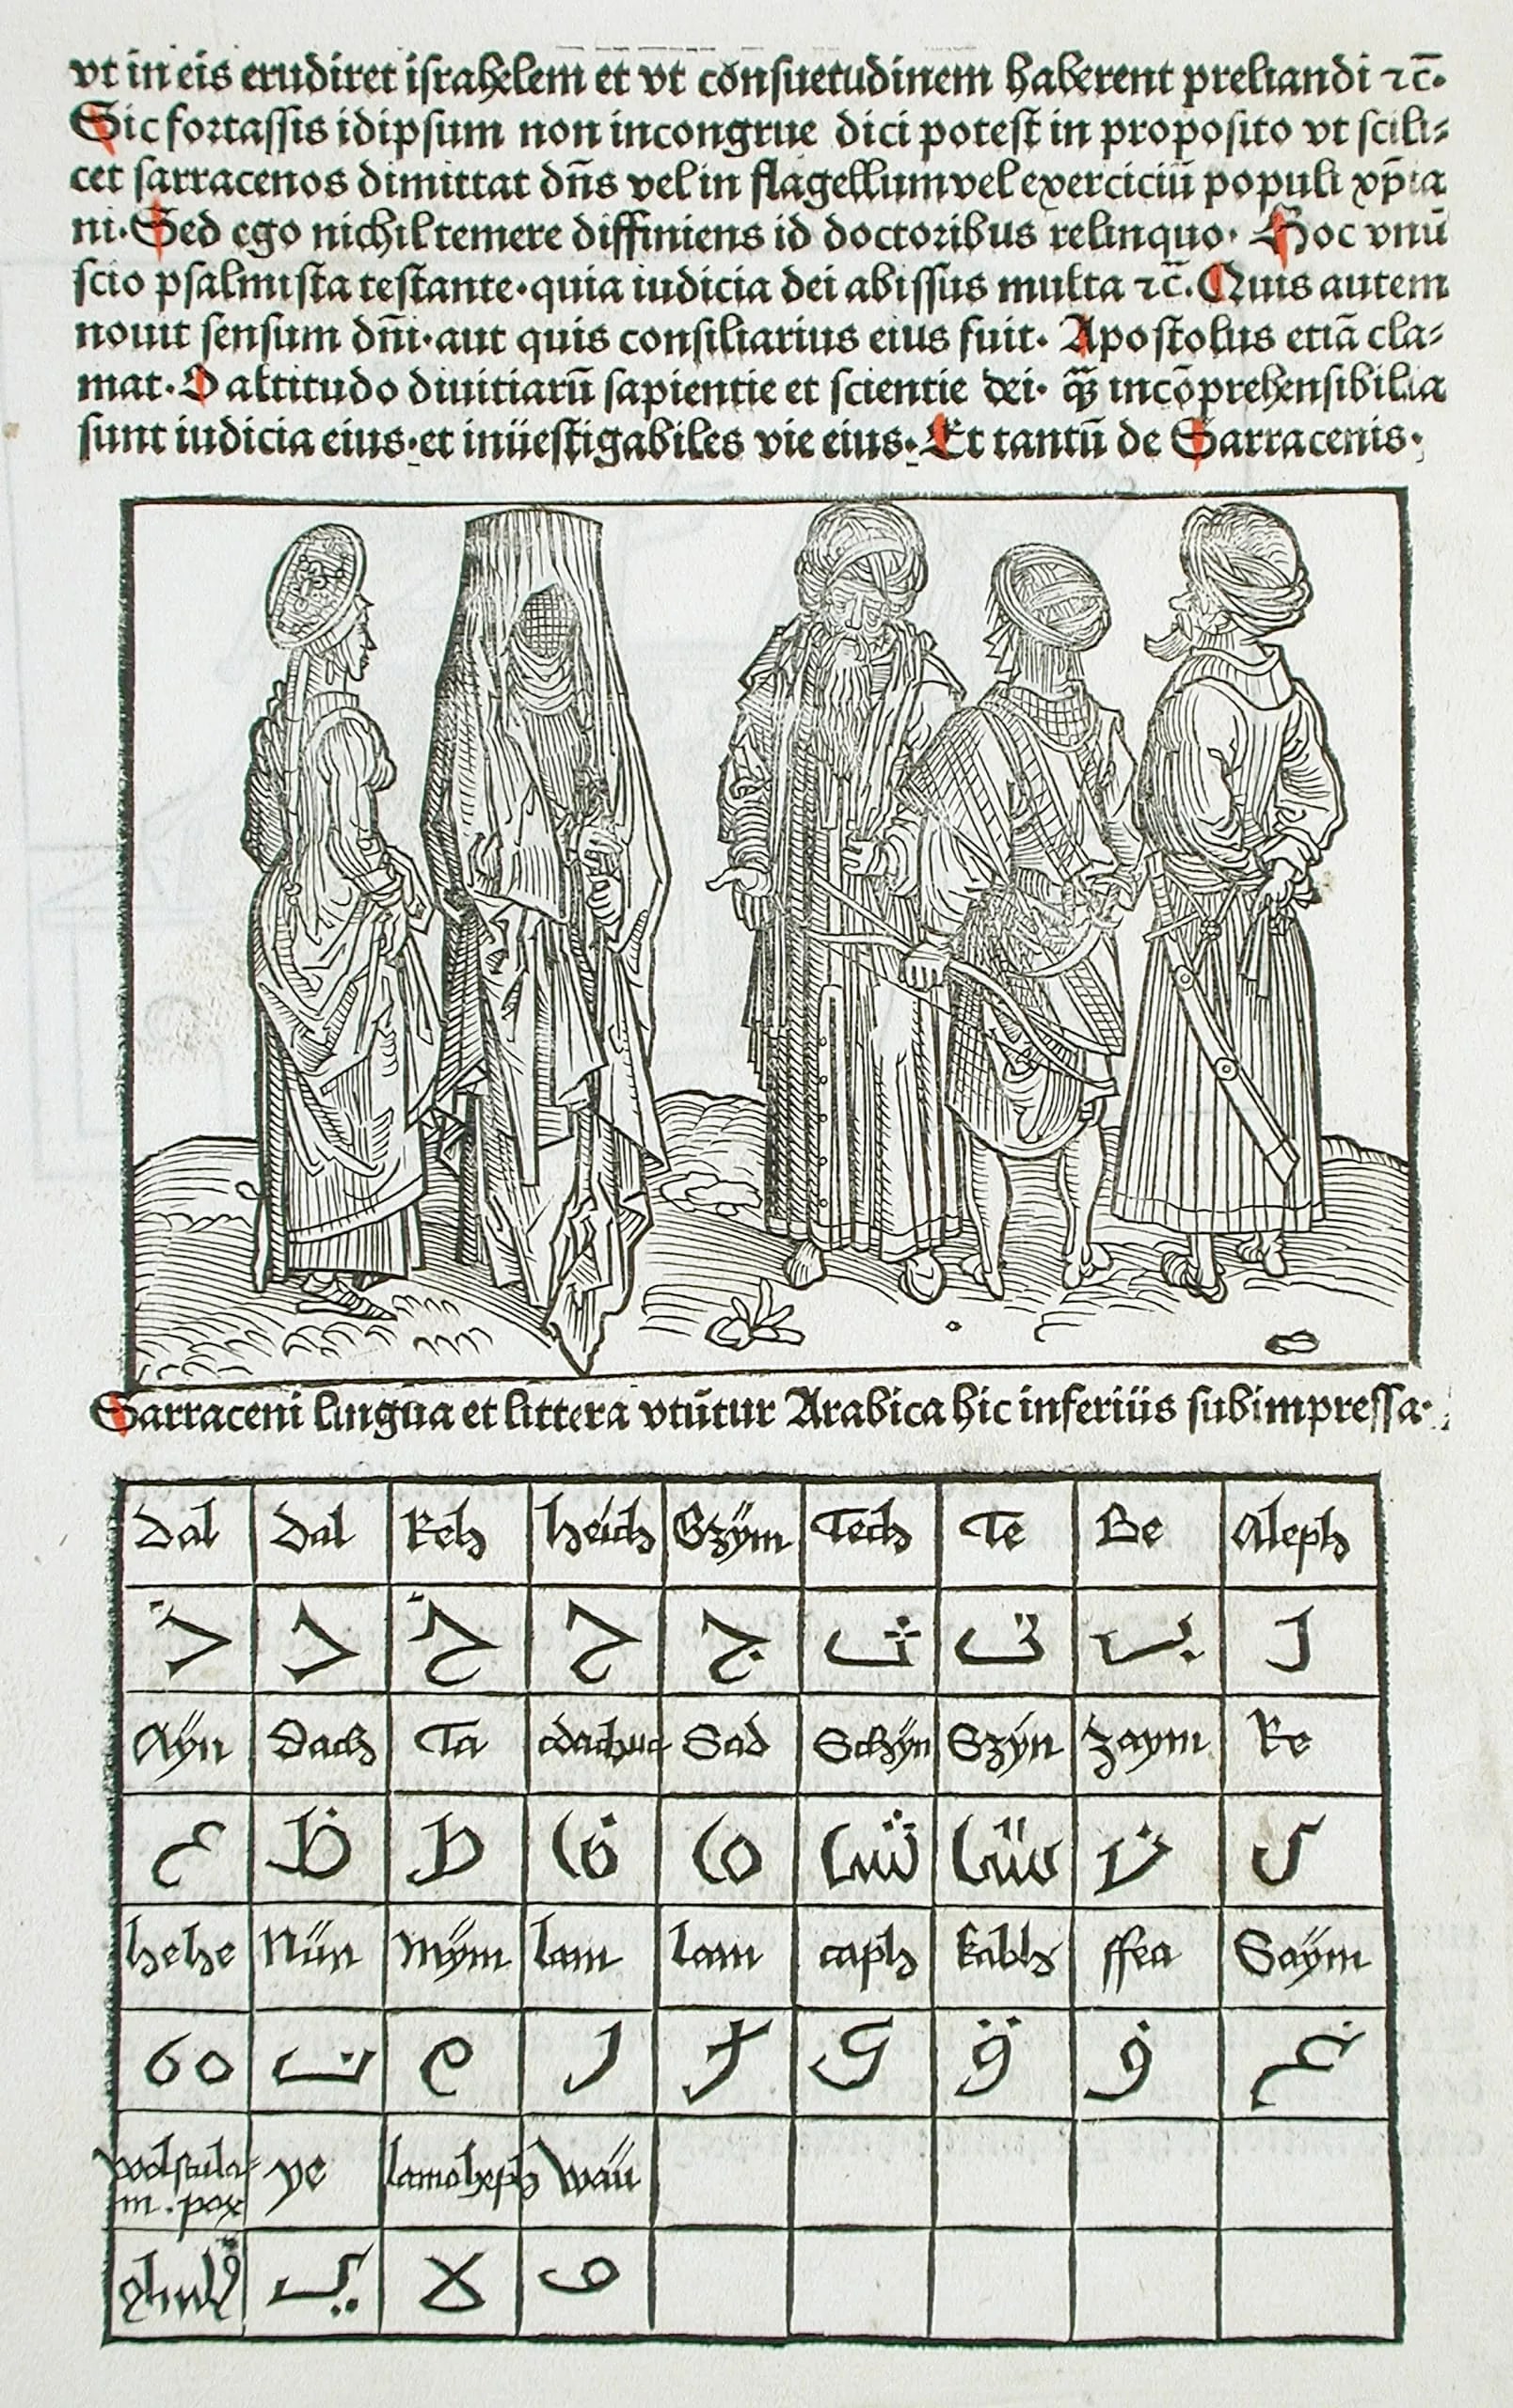 vt in eis erudiret israhelem et vt consuetudinem haberent preliandi ⁊c̄.
Sic fortassis idipsum non incongrue dici potest in proposito vt scili⸗
cet sarracenos dimittat dn̄s vel in flagellum vel exerciciū populi xp̄ia
ni. Sed ego nichil temere diffiniens id doctoribus relinquo. Hoc vnū
scio psalmista testante. quia iudicia dei abissus multa ⁊c̄. Quis autem
nouit sensum dn̄i. aut quis consiliarius eius fuit. Apostolus etiā cla⸗
mat. O altitudo diuitiarū sapientie et scientie dei. q̄ꝫ incōprehensibilia
sunt iudicia eius. et inuestigabiles vie eius. Et tantū de Sarracenis.
Sarraceni lingua et littera vtūtur Arabica hic inferius subimpressa.
Dal Dal Reh heich Gzÿm Tech Te Be Aleph
ذ د خ ح ج ث ت ب ا
Aÿn Dach Ta Sad Schÿn Szÿn Zaym Re
ع ظ ط ض ص ش س ز ر
hehe Nün Mÿm lam lam caph kabh ffea Saÿm
ه ن م ل ك ق ف غ
wolsculam. pax ye lamoheph waü
ي لا و